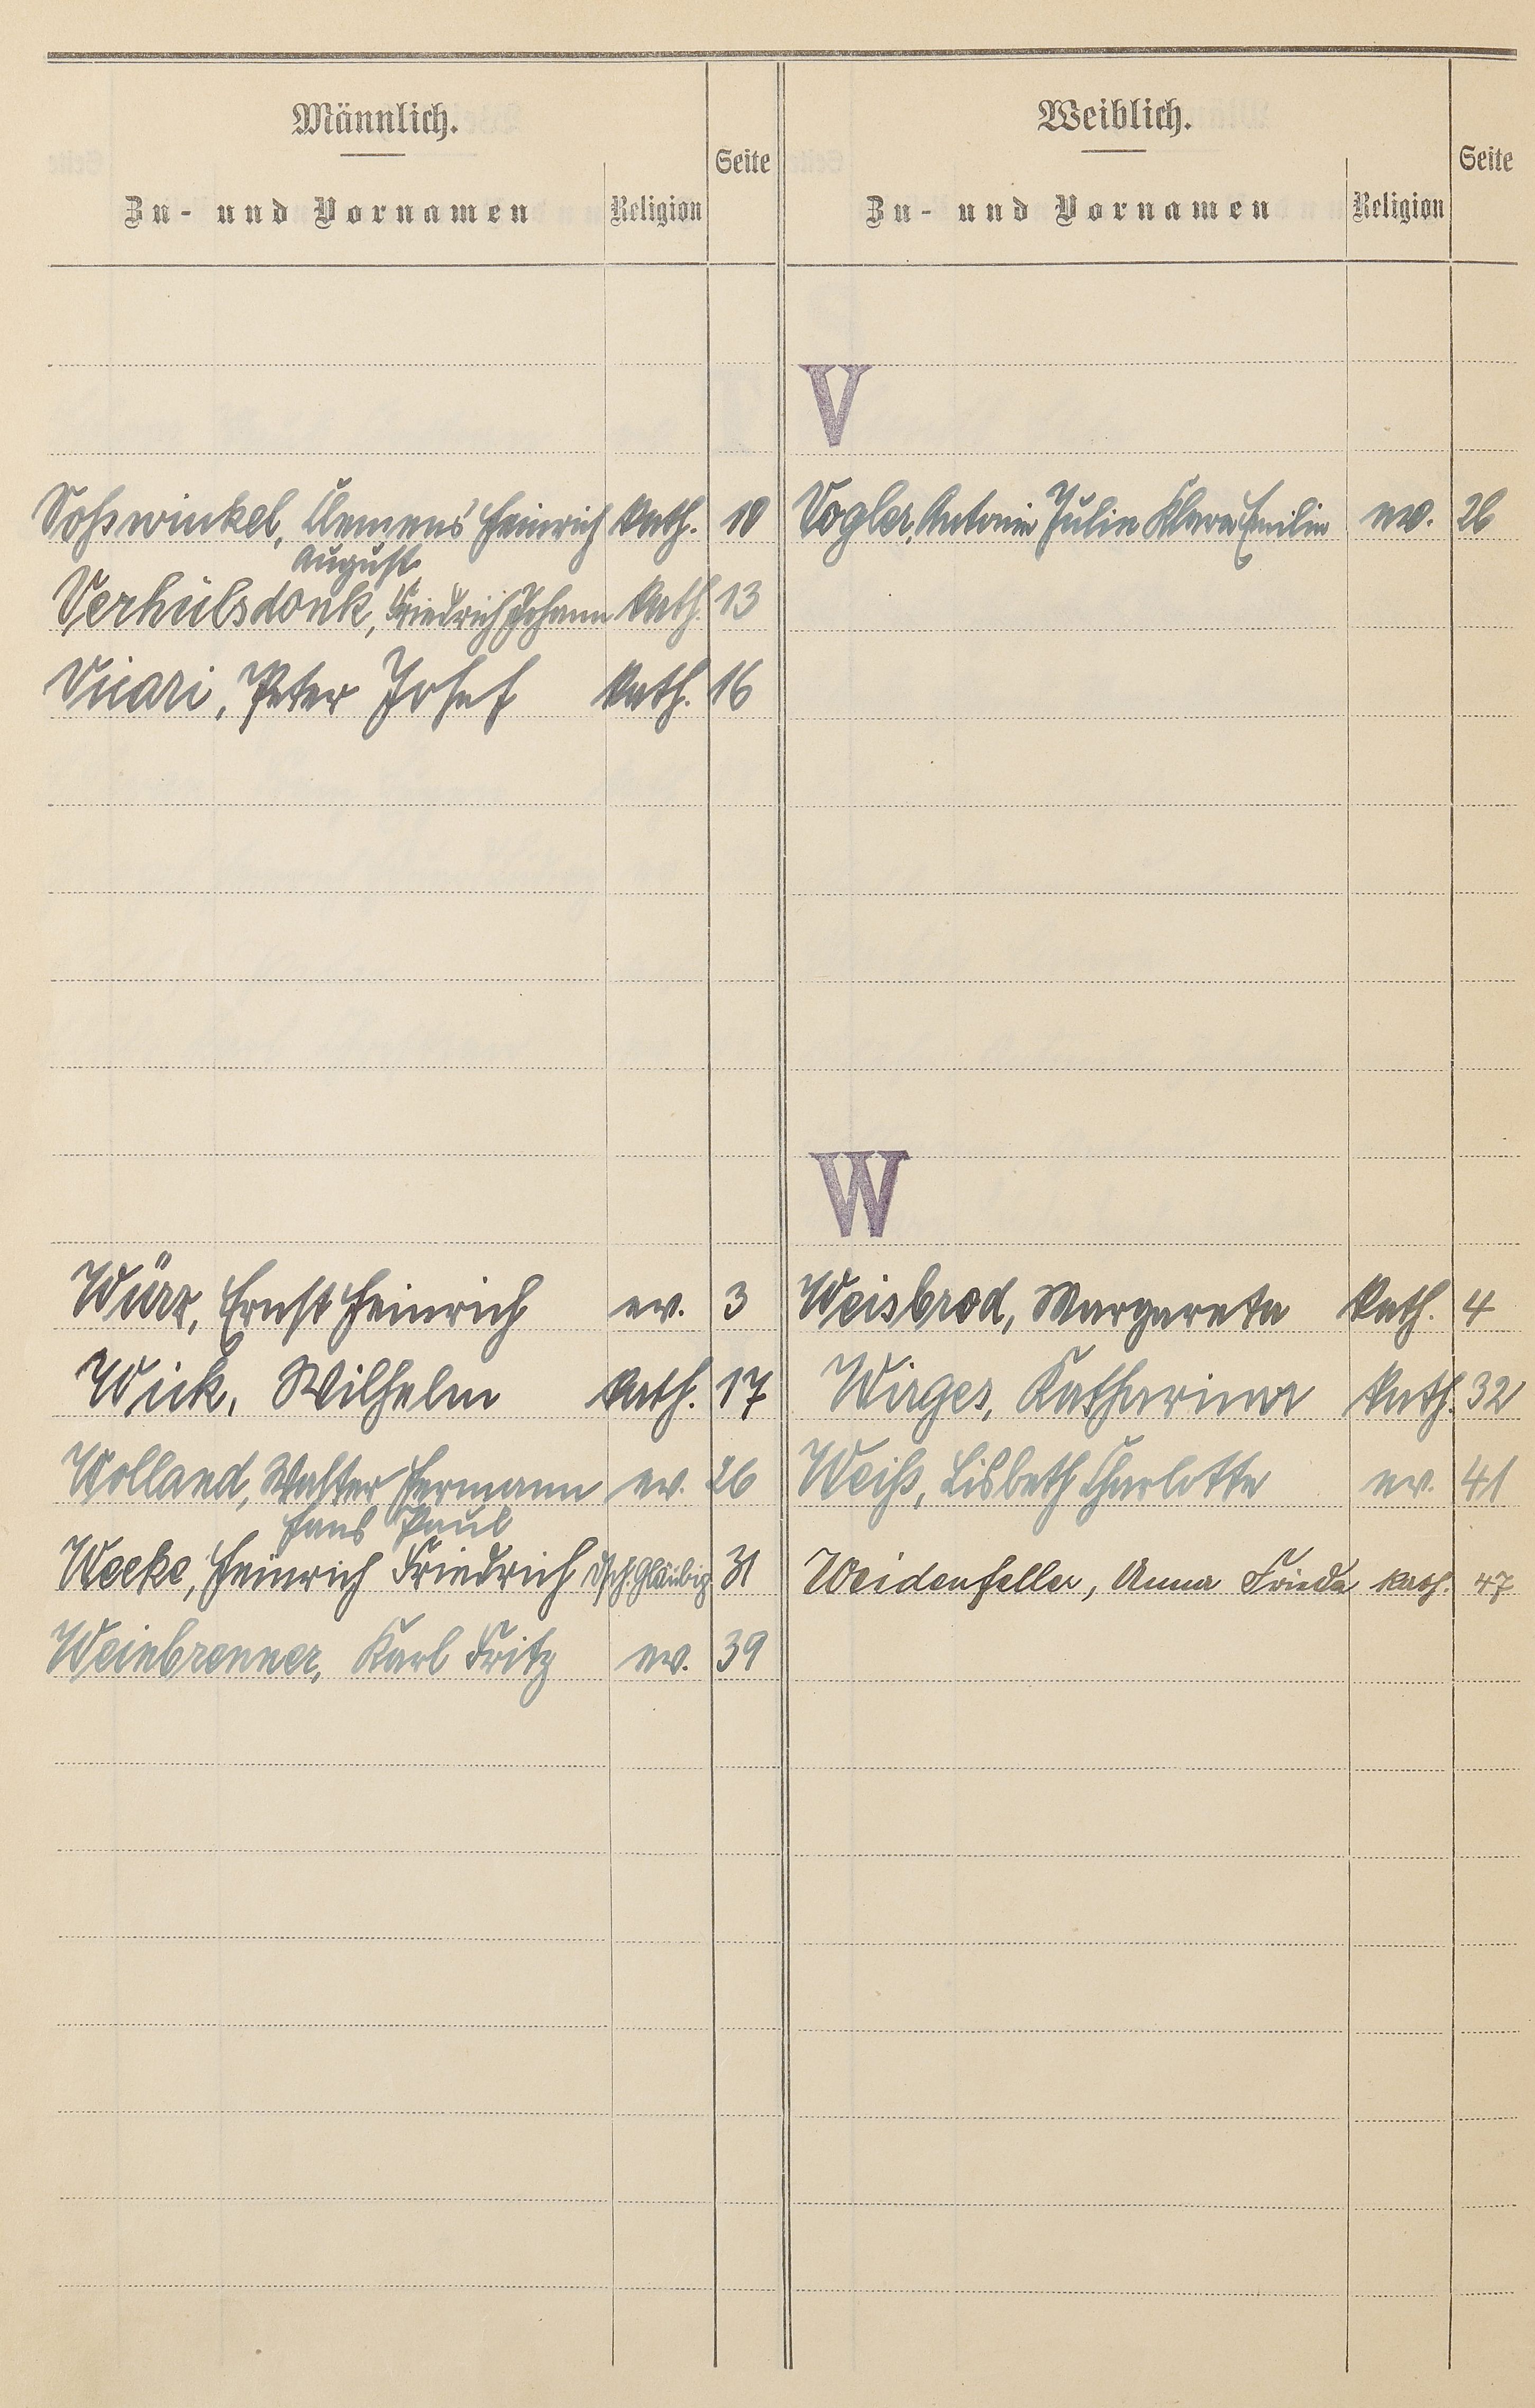 Männlich.
Zu- und Vornamen Religion Seite
Voßwinkel, Clemens Heinrich kath. 10
August
Verhülsdonk, Friedrich Johann kath. 13
Vicari, Peter Josef kath. 16
Würz, Ernst Heinrich ev. 3
Wick, Wilhelm kath. 17
Wolland, Walter Hermann ev. 26
Hans Paul
Weeke, Heinrich Friedrich dsch. Gläubig 31
Weinbrenner, Karl Fritz ev. 39
Weiblich.
Zu- und Vornamen Religion Seite
V
Vogler, Antonie Julie Klara Emilie ev. 26
W
Weisbrod, Margareta kath. 4
Wirges, Katharina kath. 32
Weiß, Lisbeth Charlotte ev. 41
Weidenfeller, Anna Frieda kath. 47